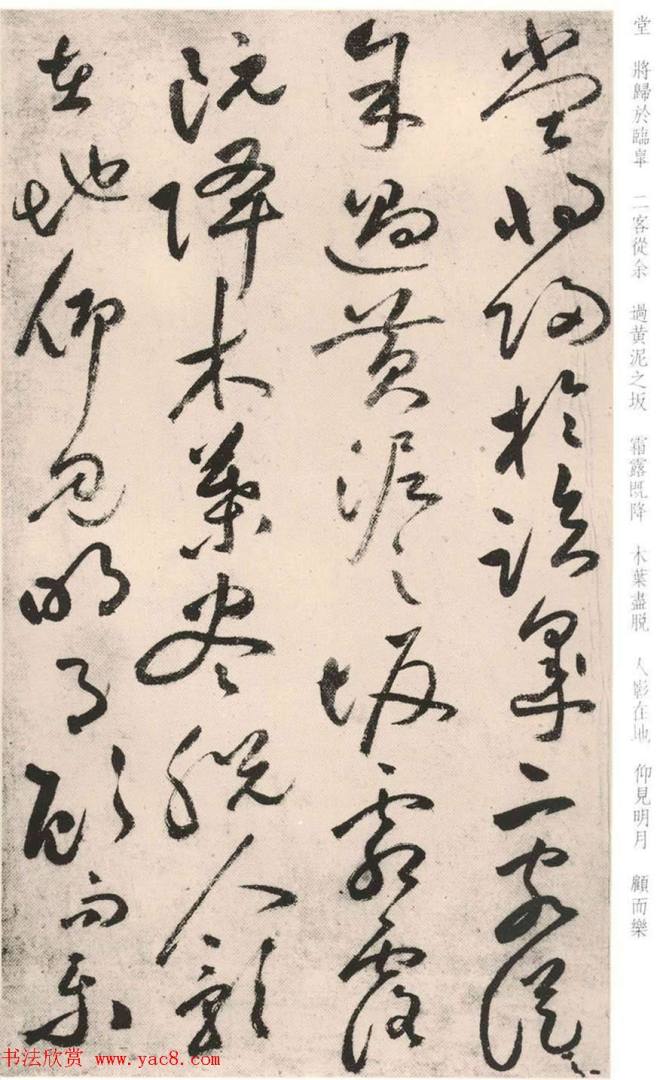 堂將歸於臨臯二客從
余過黃泥之坂霜露
既降木葉盡脫人影
在地仰見明月顧而樂
堂　將歸於臨皐　二客從余　過黄泥之坂　霜露既降　木葉盡脱　人影在地　仰見明月　顧而樂
书法欣赏 www.yac8.com